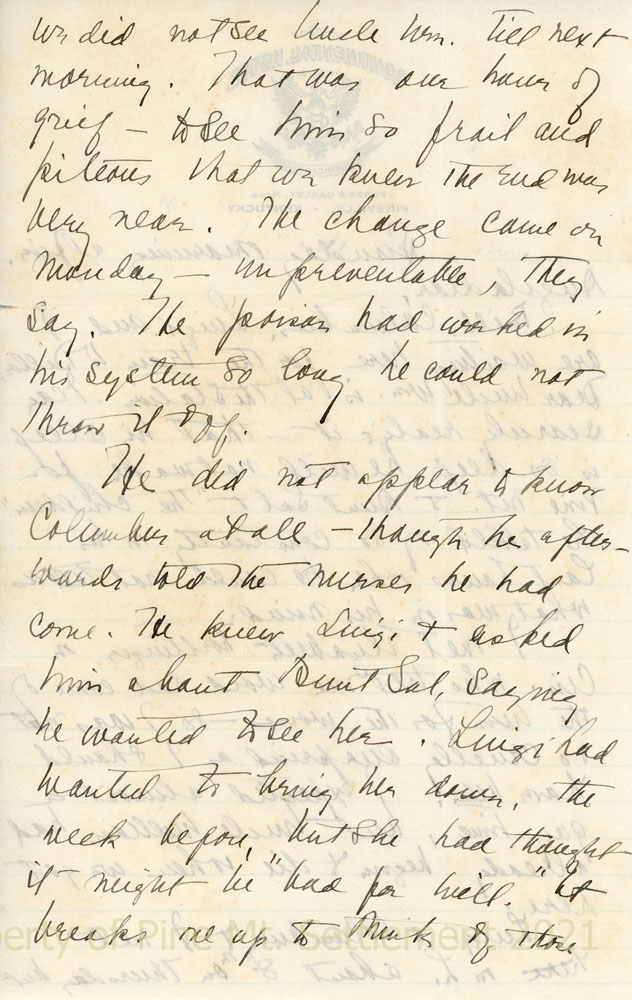 we did not see Uncle Wm. till next
morning. That was our hour of
grief – to see him so frail and
piteous that we knew the end was
very near. The change came on
Monday – unpreventable, they
say. The poison had worked in
his system so long he could not
throw it off.
He did not appear to know
Columbus at all – though he after-
wards told the nurses he had
come. He knew Luigi + asked
him about Aunt Sal, saying
he wanted to see her. Luigi had
wanted to bring her down, the
week before, but she had thought
it might be "bad for Will." It
breaks me up to think of those
perty of Pine Mt. Settlement 2021